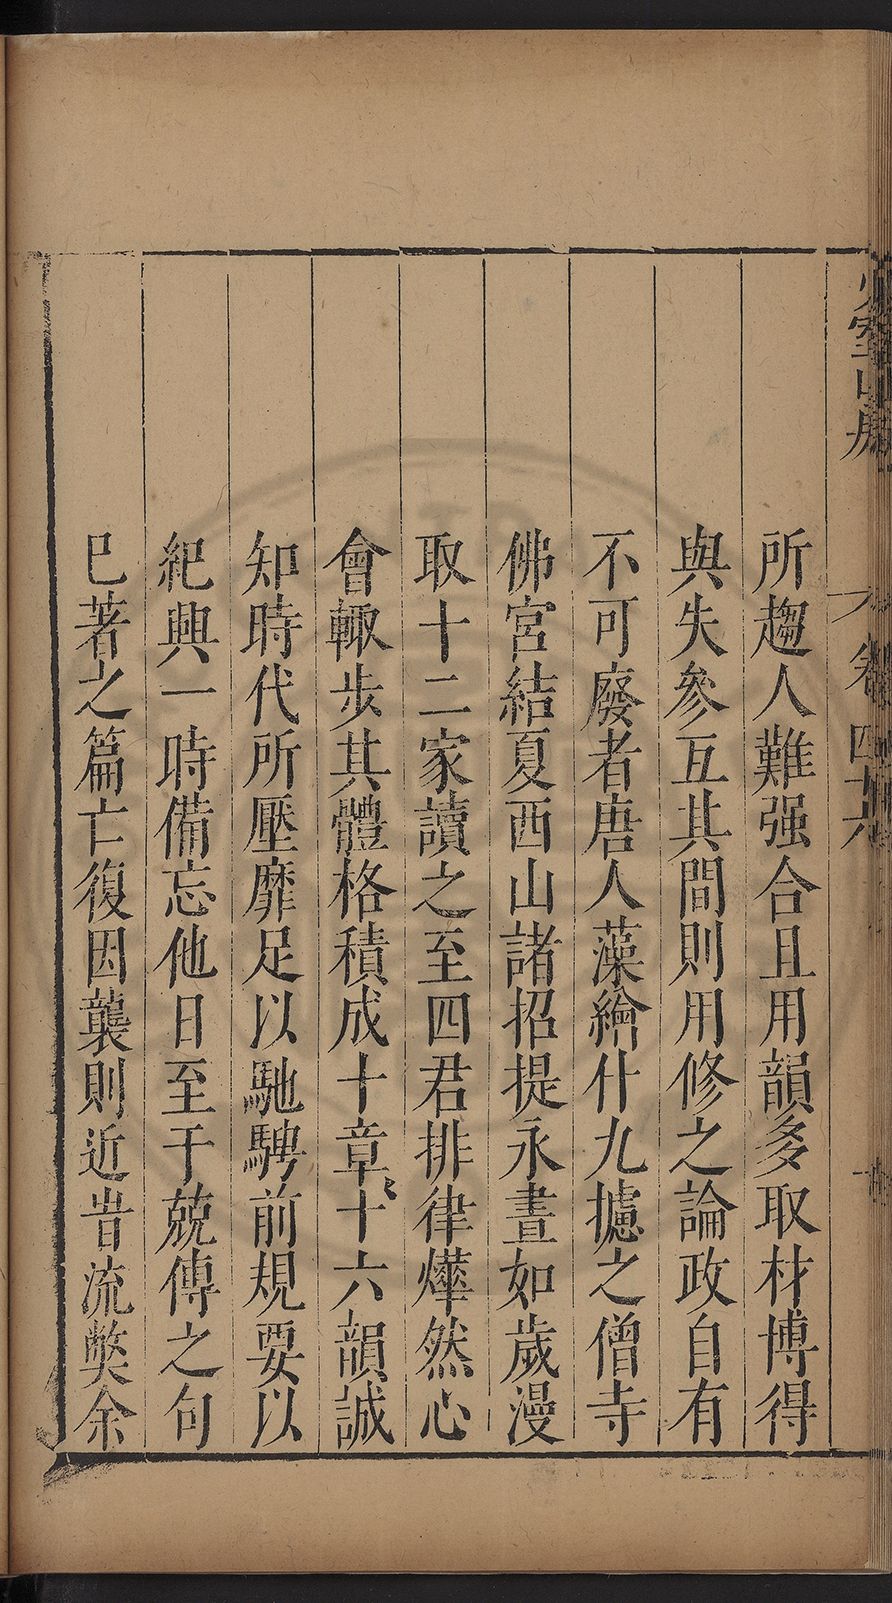 少室山房
卷四十六
所趨人難强合且用韻多取材博得
與失參互其間則用修之論政自有
不可廢者唐人藻繪什九攄之僧寺
佛宮結夏西山諸招提永晝如歲漫
取十二家讀之至四君排律燁然心
會輙步其體格積成十章章十六韻誠
知時代所壓靡足以馳騁前規要以
紀興一時備忘他日至于兢傳之句
已著之篇亡復因襲則近昔流獘余